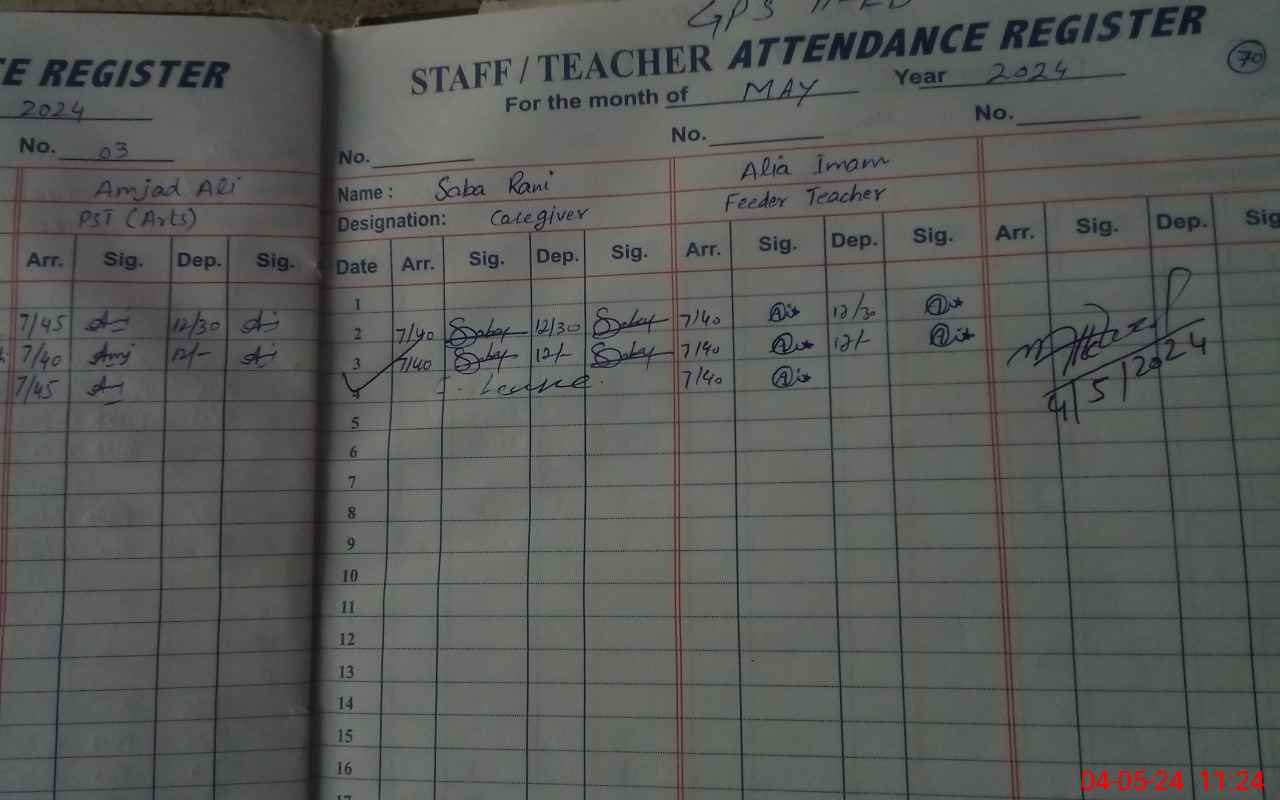 GPS
CE REGISTER
2024
No. 03
Amjad Ali
PST (Arts)
Arr. Sig. Dep. Sig.
7/45 12/30
7/40 Amj 12/-
7/45
STAFF / TEACHER ATTENDANCE REGISTER
70
For the month of MAY Year 2024
No. No. No.
Name : Saba Rani Alia Imam
Designation: Caregiver Feeder Teacher
Date Arr. Sig. Dep. Sig. Arr. Sig. Dep. Sig. Arr. Sig. Dep. Sig
1
2 7/40 Saba 12/30 Saba 7/40 12/30
3 7/40 Saba 12/- Saba 7/40 12/-
4 Leave. 7/40
4/5/2024
5
6
7
8
9
10
11
12
13
14
15
16
17
04-05-24 11:24